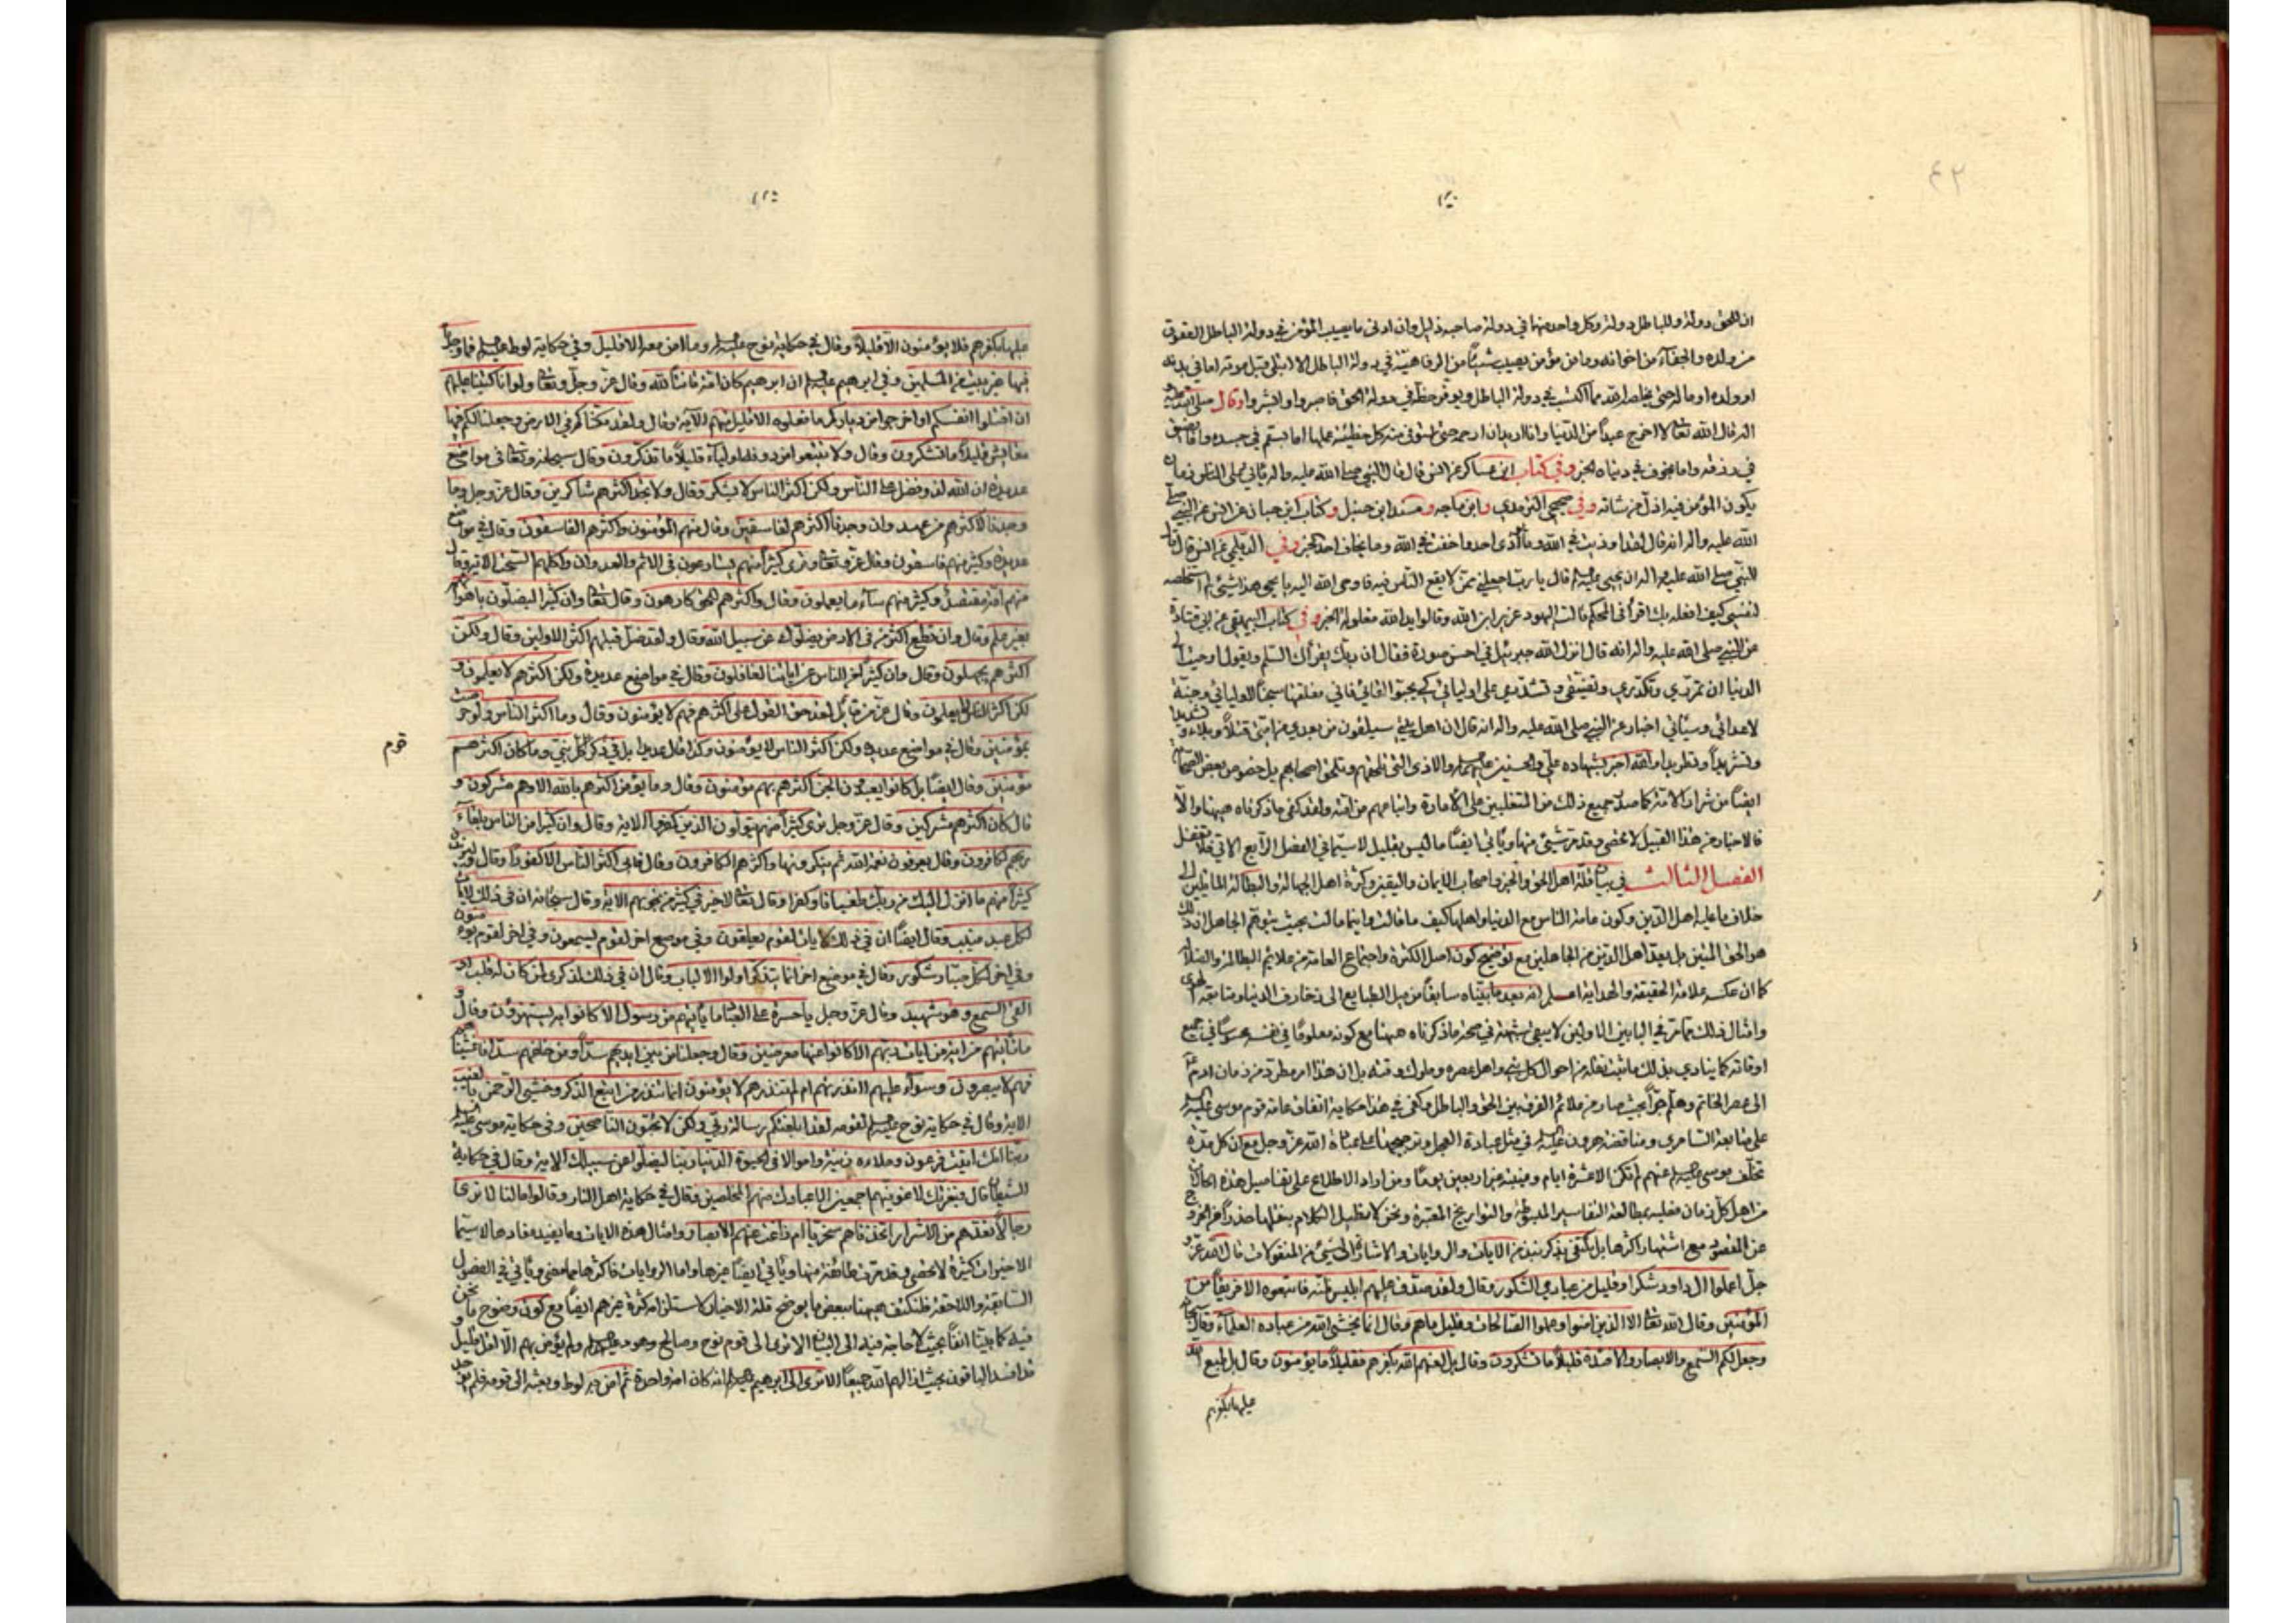 ان للحق دولة وللباطل دولة وكل واحد منهما في دولة صاحبه ذليل وان ادنى ما يصيب المؤمن في دولة الباطل العقوق
من ولده والجفاء من اخوانه وما من مؤمن يصيب شيئا من الرفاهية في دولة الباطل الا ابتلى قبل موته اما في بدنه
او ولده او ماله حتى يخلصه الله مما اكتسب في دولة الباطل ويوفر حظه في دولة الحق فاصبروا وابشروا وقال صلى الله عليه
اله قال الله تعالى لا اخرج عبدا من الدنيا وانا اريد ان ارحمه حتى استوفي منه كل خطيئة عملها اما بسقم في جسده واما بضيق
في رزقه واما بخوف في دنياه الخبر وفي كتاب ابن عساكر عن انس قال قال النبي صلى الله عليه واله يأتي على الناس زمان
يكون المؤمن فيه اذل من شاته وفي صحيحي الترمذي وابن ماجه ومسند ابن حنبل وكتاب ابن حبان عن انس عن النبي صلى
الله عليه واله انه قال لقد اوذيت في الله وما يؤذى احد واخفت في الله وما يخاف احد الخبر وفي الديلمي عن انس قال قال
النبي صلى الله عليه واله ان يحيى عليه السلم قال يا رب اجعلني ممن لا يقع الناس فيه فاوحى الله اليه يا يحيى هذا شيء لم استخلصه
لنفسي كيف افعله بك اقرأ في المحكم قالت اليهود عزير ابن الله وقالوا يد الله مغلولة الخبر وفي كتاب البيهقي عن ابي قتادة
عن النبي صلى الله عليه واله انه قال انزل الله جبرئيل في احسن صورة فقال ان ربك يقرأك السلم ويقول اوحيت الى
الدنيا ان تمرري وتكدري وتضيقي وتشددي على اوليائي كي يحبوا لقائي فاني خلقتها سجنا لاوليائي وجنة
لاعدائي وسيأتي اخبار عن النبي صلى الله عليه واله انه قال ان اهل بيتي سيلقون من بعدي من امتي قتلا وبلاء وتشديدا
وتشريدا وتطريدا وانه اخبر بشهادة علي والحسنين عليهم السلم والاذى التي تلحقهم وتلحق اصحابهم بل خصوص بعض الصحابة
ايضا من شرار الامة كما صدر جميع ذلك من المتغلبين على الامارة واتباعهم من امته ولقد كفى ما ذكرناه هيهنا والا
فالاخبار من هذا القبيل لا تحصى وقد مر شيء منها ويأتي ايضا ما ليس بقليل لا سيما في الفصل الرابع الاتي فلا تغفل
الفصل الثالث في بيان قلة اهل الحق والخير واصحاب الايمان واليقين وكثرة اهل الجهالة والبطالة المائلين الى
خلاف ما عليه اهل الدين وكون عامة الناس مع الدنيا واهلها كيف ما قالت واينما مالت بحيث يتوهم الجاهل ان ذلك
هو الحق المتين بل يعد اهل الدين من الجاهلين مع توضيح كون اصل الكثرة واجتماع العامة من علائم البطالة والضلالة
كما ان عكسه علامة الحقيقة والهداية اعلم انه بعد ما بيناه سابقا من ميل الطبايع الى زخارف الدنيا ومتابعة الهوى
وامثال ذلك مما مر في البابين الاولين لا يبقى شبهة في صحة ما ذكرناه هيهنا مع كونه معلوما في نفسه محسوسا في جميع
اوقاته كما ينادي بذلك ما ثبت نقله من احوال كل نبي واهل عصره وملوك وقته بل ان هذا امر مطرد من زمان ادم
الى عصر الخاتم وهلم جرا بحيث صار من علائم الفرق بين الحق والباطل وكفى في هذا حكاية اتفاق عامة قوم موسى عليه السلم
على متابعة السامري ومناقضة هرون عليه السلم في مثل عبادة العجل وترجيحها على عبادة الله عز وجل مع ان كل مدة
تخلف موسى عليه السلم عنهم لم تكن الا عشرة ايام وغيبته عن اربعين يوما ومن اراد الاطلاع على تفاصيل هذه الحالات
من اهل كل زمان فعليه بمطالعة التفاسير المبسوطة والتواريخ المعتبرة ونحن لا نطيل الكلام بنقلها حذرا من الخروج
عن المقصود مع اشتهار اكثرها بل نكتفي بذكر نبذ من الايات والروايات والاشارة الى شيء من المنقولات قال الله عز و
جل اعملوا ال داود شكرا وقليل من عبادي الشكور وقال ولقد صدق عليهم ابليس ظنه فاتبعوه الا فريقا من
المؤمنين وقال الله تعالى الا الذين امنوا وعملوا الصالحات وقليل ما هم وقال انما يخشى الله من عباده العلماء وقال
وجعل لكم السمع والابصار والافئدة قليلا ما تشكرون وقال بل لعنهم الله بكفرهم فقليلا ما يؤمنون وقال بل طبع الله
عليها بكفرهم
عليها بكفرهم فلا يؤمنون الا قليلا وقال في حكاية نوح عليه السلم وما امن معه الا قليل وفي حكاية لوط عليه السلم فما وجدنا
فيها غير بيت من المسلمين وفي ابرهيم عليه السلم ان ابرهيم كان امة قانتا لله وقال عز وجل وتعالى ولو انا كتبنا عليهم
ان اقتلوا انفسكم او اخرجوا من دياركم ما فعلوه الا قليل منهم الاية وقال ولقد مكناكم في الارض وجعلنا لكم فيها
معايش قليلا ما تشكرون وقال ولا تتبعوا من دونه اولياء قليلا ما تذكرون وقال سبحانه وتعالى في مواضع
عديدة ان الله لذو فضل على الناس ولكن اكثر الناس لا يشكر وقال ولا تجد اكثرهم شاكرين وقال عز وجل وما
وجدنا لاكثرهم من عهد وان وجدنا اكثرهم لفاسقين وقال منهم المؤمنون واكثرهم الفاسقون وقال في مواضع
عديدة وكثير منهم فاسقون وقال عز وتعالى وترى كثيرا منهم يسارعون في الاثم والعدوان واكلهم السحت الاية وقال
منهم امة مقتصدة وكثير منهم ساء ما يعملون وقال واكثرهم للحق كارهون وقال تعالى وان كثيرا ليضلون باهوائهم
بغير علم وقال وان تطع اكثر من في الارض يضلوك عن سبيل الله وقال ولقد ضل قبلهم اكثر الاولين وقال ولكن
اكثرهم يجهلون وقال وان كثيرا من الناس عن اياتنا لغافلون وقال في مواضع عديدة ولكن اكثرهم لا يعلمون و
لكن اكثر الناس لا يعلمون وقال عز من قائل لقد حق القول على اكثرهم فهم لا يؤمنون وقال وما اكثر الناس ولو حرصت
بمؤمنين وقال في مواضع عديدة ولكن اكثر الناس لا يؤمنون وكذا قال عديدا بل في ذكر كل نبي وما كان اكثرهم
قوم
مؤمنين وقال ايضا بل كانوا يعبدون الجن اكثرهم بهم مؤمنون وقال وما يؤمن اكثرهم بالله الا وهم مشركون و
قال كان اكثرهم مشركين وقال عز وجل ترى كثيرا منهم يتولون الذين كفروا الاية وقال وان كثيرا من الناس بلقاء
ربهم لكافرون وقال يعرفون نعمة الله ثم ينكرونها واكثرهم الكافرون وقال فابى اكثر الناس الا كفورا وقال وليزيدن
كثيرا منهم ما انزل اليك من ربك طغيانا وكفرا وقال تعالى لا خير في كثير من نجويهم الاية وقال سبحانه ان في ذلك لايات
لكل عبد منيب وقال ايضا ان في ذلك لايات لقوم يعقلون وفي موضع اخر لقوم يسمعون وفي اخر لقوم يؤمنون
وفي اخر لكل صبار شكور وقال في موضع اخر انما يتذكر اولوا الالباب وقال ان في ذلك لذكرى لمن كان له قلب او
القى السمع وهو شهيد وقال عز وجل يا حسرة على العباد ما يأتيهم من رسول الا كانوا به يستهزؤن وقال و
ما تأتيهم من اية من ايات ربهم الا كانوا عنها معرضين وقال وجعلنا من بين ايديهم سدا ومن خلفهم سدا فاغشيناهم
فهم لا يبصرون وسواء عليهم ءانذرتهم ام لم تنذرهم لا يؤمنون انما تنذر من اتبع الذكر وخشي الرحمن بالغيب
الاية وقال في حكاية نوح عليه السلم لقومه لقد ابلغتكم رسالة ربي ولكن لا تحبون الناصحين وفي حكاية موسى عليه السلم
ربنا انك اتيت فرعون وملاءه زينة واموالا في الحيوة الدنيا ربنا ليضلوا عن سبيلك الاية وقال في حكاية
الشيطان قال فبعزتك لاغوينهم اجمعين الا عبادك منهم المخلصين وقال في حكاية اهل النار وقالوا ما لنا لا نرى
رجالا كنا نعدهم من الاشرار اتخذناهم سخريا ام زاغت عنهم الابصار وامثال هذه الايات وما يفيد مفادها لا سيما
الاخيرات كثيرة لا تحصى وقد مرت طائفة منها ويأتي ايضا غيرها واما الروايات فاكثرها مما مضى ويأتي في الفصول
السابقة واللاحقة فلنكتف هيهنا ببعض ما يوضح قلة الاخيار لاستلزامه كثرة غيرهم ايضا مع كون وضوح ما نحن
فيه كما بينا انفا بحيث لا حاجة فيه الى البيان الا ترى الى قوم نوح وصالح وهود عليهم السلم ولم يؤمن بهم الا اقل قليل و
قد افسد الباقون بحيث اهلكهم الله جميعا الا ترى الى ابرهيم عليه السلم انه كان امة واحدة ثم امن به لوط وبعثه الى قومه فلم يجد